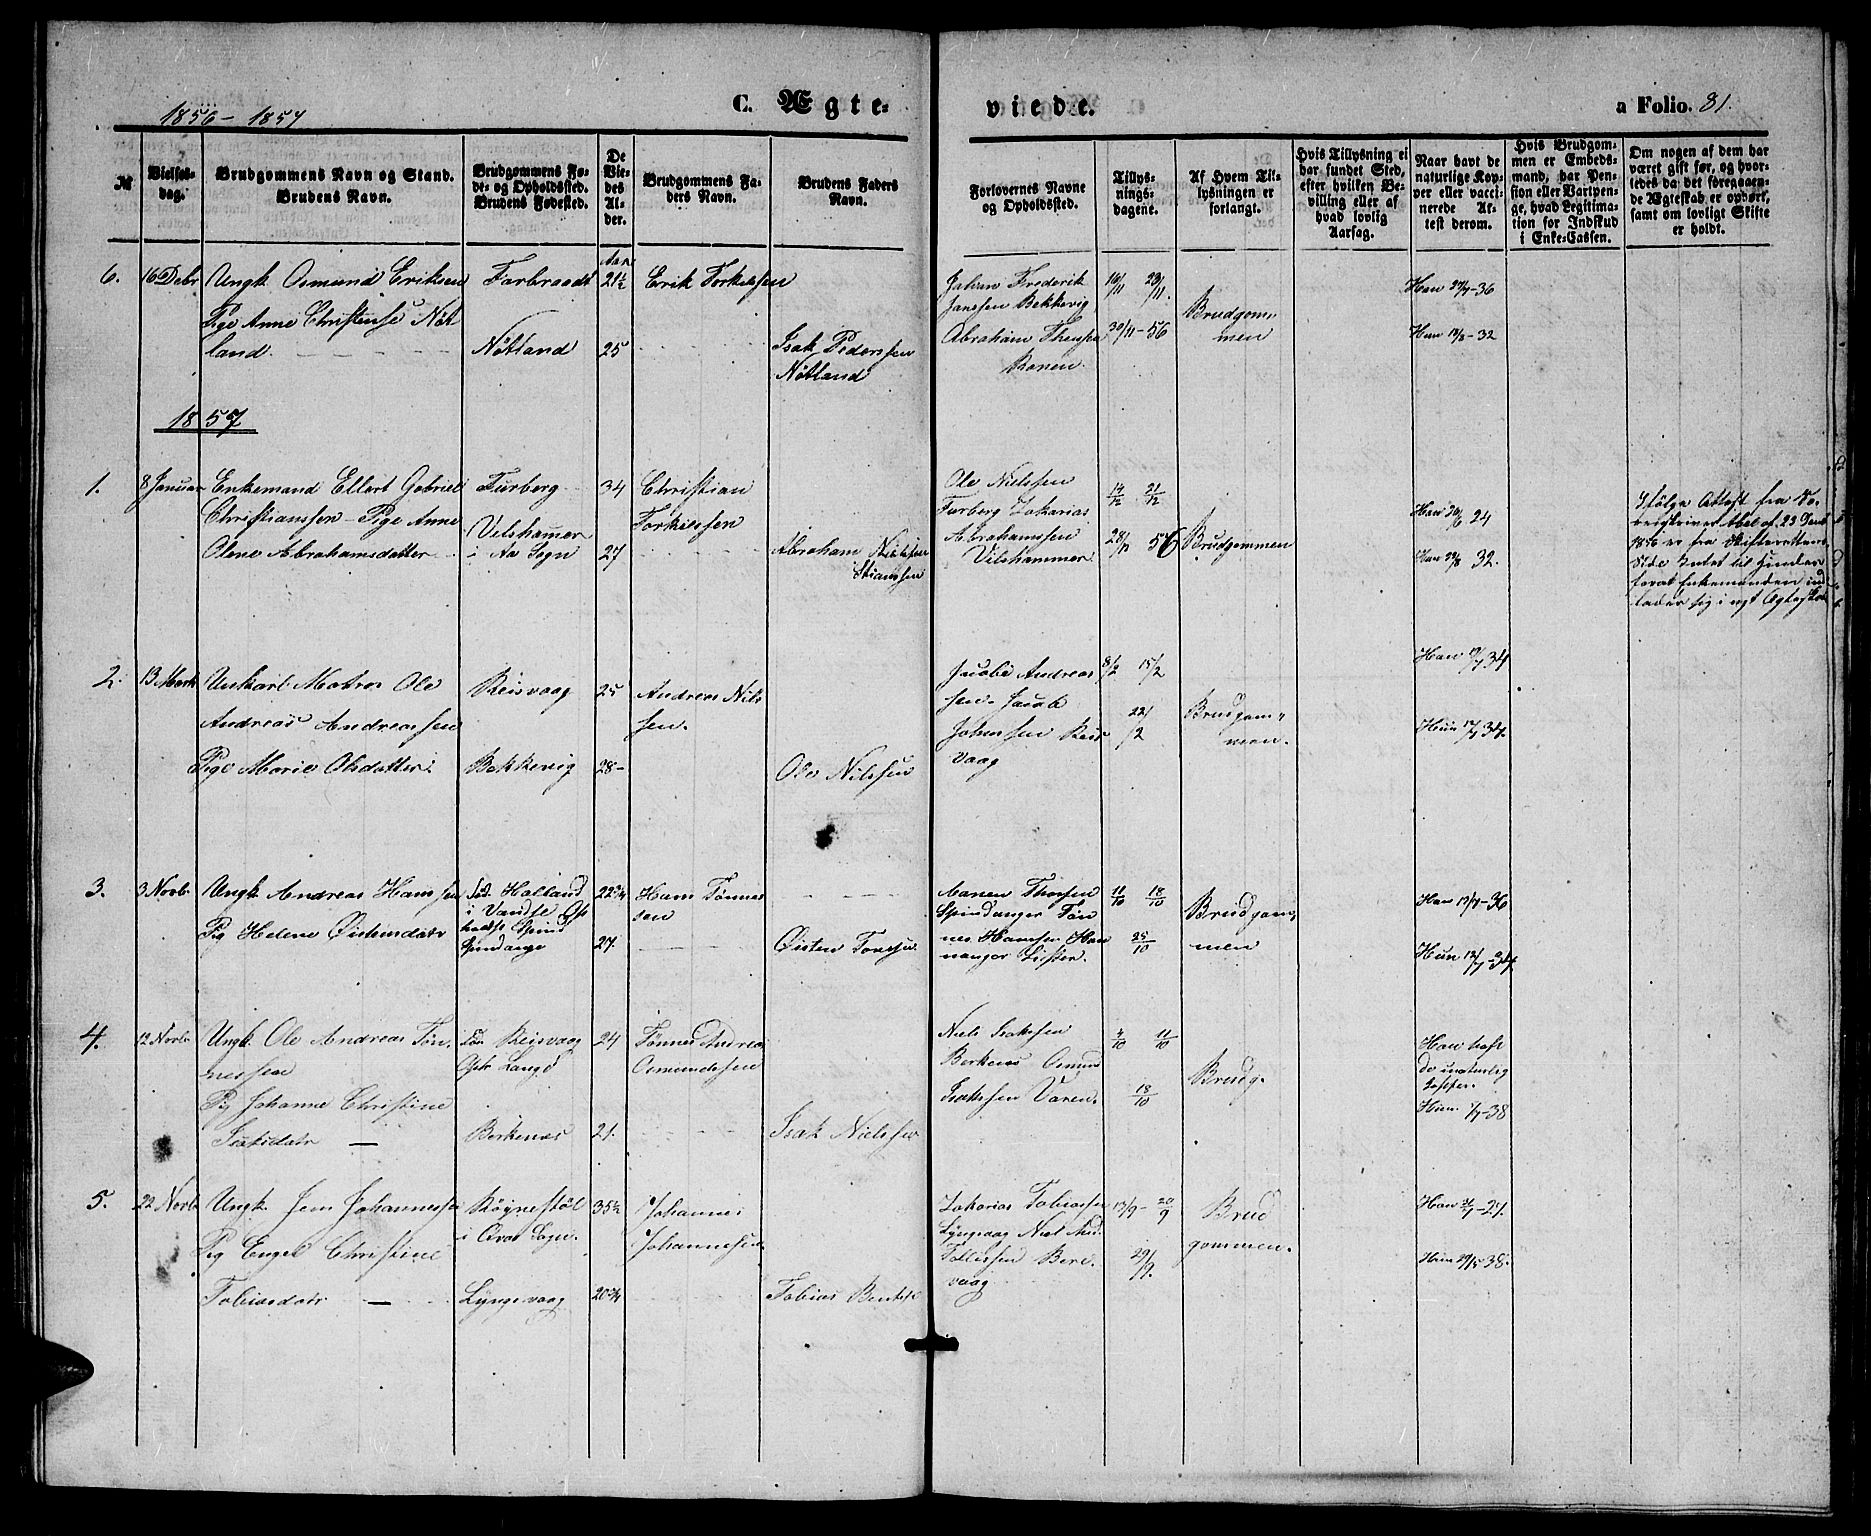 1856-1857
C. Ægte-
viede.
a Folio. 81.
№
Vielses-
dag.
Brudgommens Navn og Stand.
Brudens Navn.
Brudgommens Fø-
de- og Opholdssted.
Brudens Fødested.
De
Vie-
des
Al-
der.
Brudgommens Fa-
ders Navn.
Brudens Faders
Navn.
Forlovernes Navne
og Opholdssted.
Tillys-
nings-
dagene.
Af Hvem Til-
lysningen er
forlangt.
Hvis Tillysning ei
har fundet Sted,
efter hvilken Be-
villing eller af
hvad lovlig
Aarsag.
Naar havt de
naturlige Kop-
per eller vacci-
nerede At-
test derom.
Hvis Brudgom-
men er Embeds-
mand, har Pen-
sion eller Vartpen-
ge, hvad Legitima-
tion for Indskud
i Enke-Cassen.
Om nogen af dem har
været gift før, og hvor-
ledes da det foregaaen-
de Ægteskab er ophørt,
samt om lovligt Skifte
er holdt.
6. 16 Debr Ungk. Osmund Eriksen
Pige Anne Christense Nøt-
land.
21½ Erik Torkelssen
Nøtland 25 Isak Pederssen
Nøtland
Johan Frederik
Janssen Bekkevig
Abraham
16/11 23/11.
30/11-56
Brudgom-
men
Han -36
Hun -32
1857
1. 8 Januar Enkemand Ellert Gabriel
Christianssen - Pige Anne
Olene Abrahamsdatter
Furberg
Velshamer
i Aa Sogn
34
27
Christian
Torkilssen
Abraham
Ole Nielssen
Furberg Zakarias
Abrahamssen
Vilshammer
14/12 21/12
28/12 56 Brudgommen
Han 24
Hun 32.
Ifølge Attest fra
Abel af 22 Decbr
1856 er fra Skifterettens
Side Intet til Hinder
for at Enkemanden ind-
lader sig i nyt Ægteskab
2. 13 Marts Unkarl Matros Ole
Andreas Andreassen
Pige Marie Olsdatter
Reisvaag
Bekkevig
25
28-
Andreas Nils
sen.
Ole Nilssen
Jacob Andreas
sen. Jacob
Johnssen Reis
vaag
8/2 15/2
22/2
Brudgom-
men.
Han 34
Hun 34.
3. 3 Novb. Ungk. Andreas Hanssen
Pig Helene Øistensdatr
Fød. Halland
i Vandse Op
holdst Spind
Spindange
22¾
27.
Hans Tønnes
sen
Øisten Toressen
Manen Thorsen
Spindanger Tøn
nes Hanssen Han
nanger Lister.
11/10 18/10
25/10
Brudgom-
men
Han -36
Hun -34
4. 12 Novb. Ungk. Ole Andreas Tøn-
nessen
Pig Johanne Christine
Isaksdatr —
Fød Reisvaag
Oph Langø
Berkenes
24
21.
Tønnes Andreas
Osmundssen
Isak Nielssen
Niels Isakssen
Berkenes Osmund
Isakssen Varen.
4/10 11/10
18/10
Brudg.
Han haft
de naturlig
Kopper.
Hun -38
5. 22 Novb. Ungk. Jens Johannessen
Pig Engel Christine
Tobiasdatr —
Røynestøl
i Qvas Sogn.
Lyngsvaag
35½
20¾
Johannes
Johannessen
Tobias Bentse
Zakarias Tobiassen
Lyngsvaag Niel
Tollissen Bere-
vaag
13/9- 20/9
29/9.
Brud
gommen.
Han -27.
Hun 29/5-38.